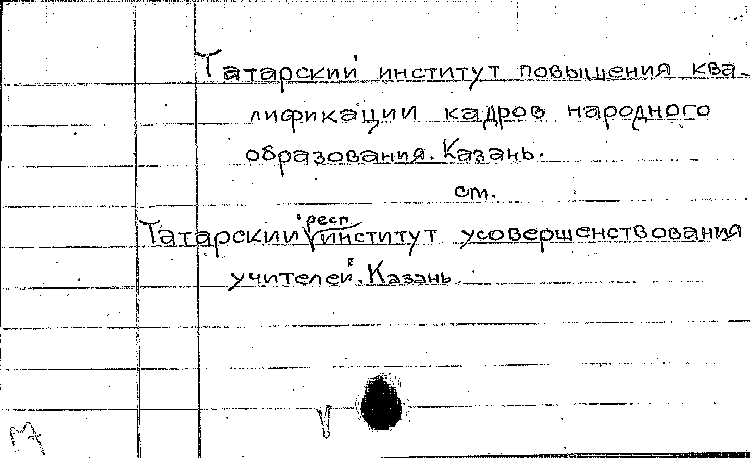 Татарский институт повышения ква-
лификации кадров народного
образования. Казань.
см.
респ.
Татарский институт усовершенствования
учителей. Казань.